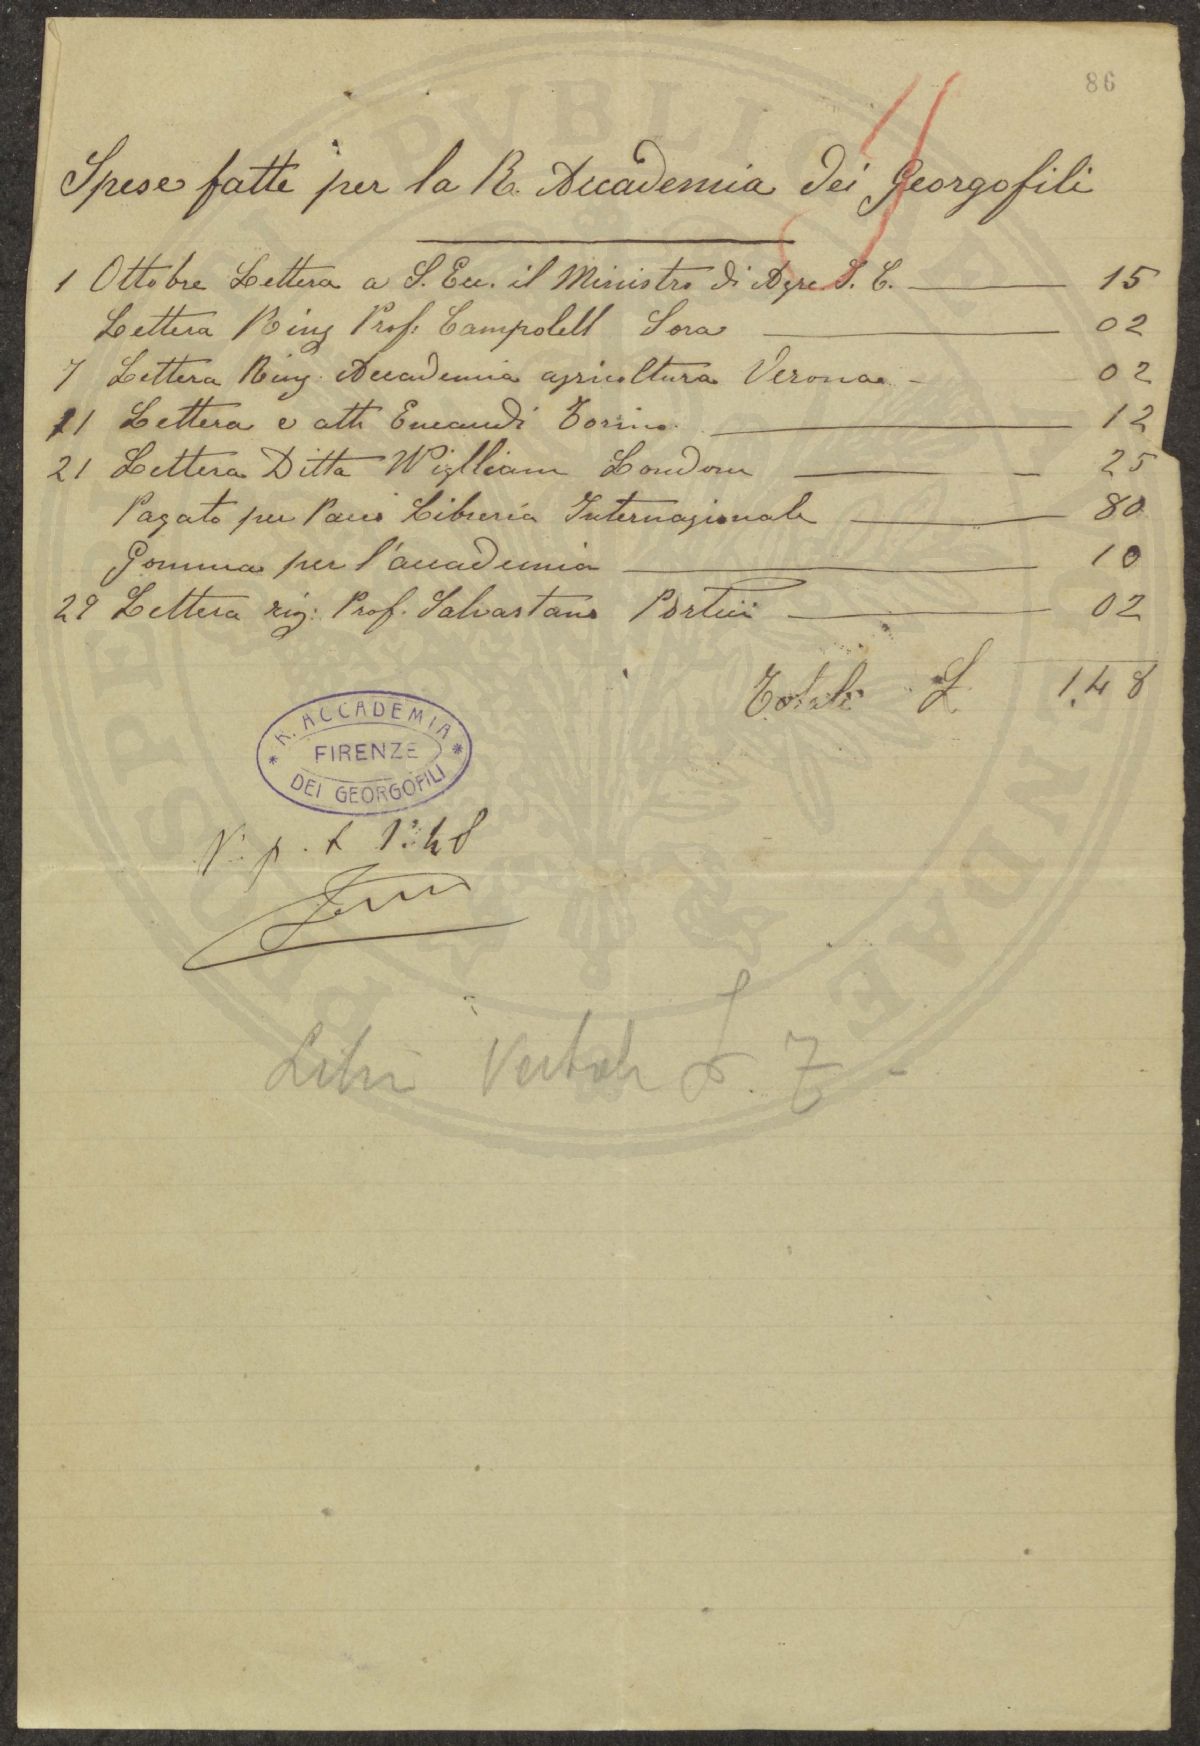 86
Spese fatte per la R. Accademia dei Georgofili
1 Ottobre Lettera a S. Ecc. il Ministro di Agre I. C. 15
Lettera Ring Prof. Campolell Sora 02
7 Lettera Ring. Accademia agricoltura Verona - 02
11 Lettera e atti Eneaudi Torino 12
21 Lettera Ditta Wiglliam Londom 25
Pagato per Pacco Libreria Internazionale 80
Gomma per l'accademia 10
29 Lettera rig: Prof. Salvastano Portici 02
Totale L 1.48
R. ACCADEMIA
FIRENZE
DEI GEORGOFILI
V. p. L 1.48
Libri Verbali L. 7 -